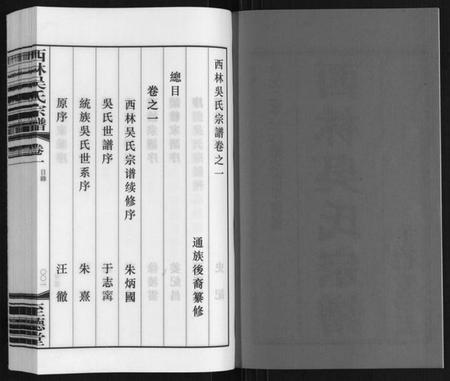 西林吳氏宗譜卷之一
通族後裔纂修
總目
卷之一
西林吳氏宗谱续修序 朱炳國
吳氏世譜序 于志寗
統族吳氏世系序 朱熹
原序 汪徹
西林吳氏宗譜 卷一 目錄 〇〇一 至德堂